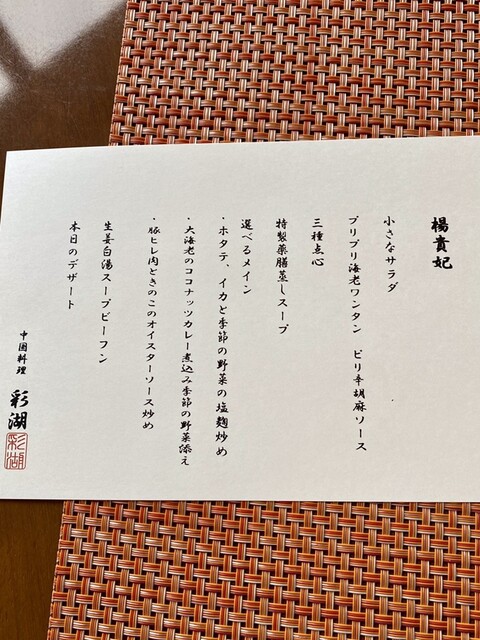 楊貴妃
小さなサラダ
プリプリ海老ワンタン　ピリ辛胡麻ソース
三種点心
特製薬膳蒸しスープ
選べるメイン
・ホタテ、イカと季節の野菜の塩麹炒め
・大海老のココナッツカレー煮込み季節の野菜添え
・豚ヒレ肉ときのこのオイスターソース炒め
生姜白湯スープビーフン
本日のデザート
中国料理　彩湖
彩湖